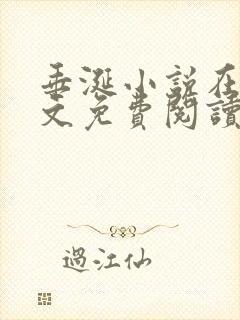 垂涎小说在
文免費閱讀
過江仙